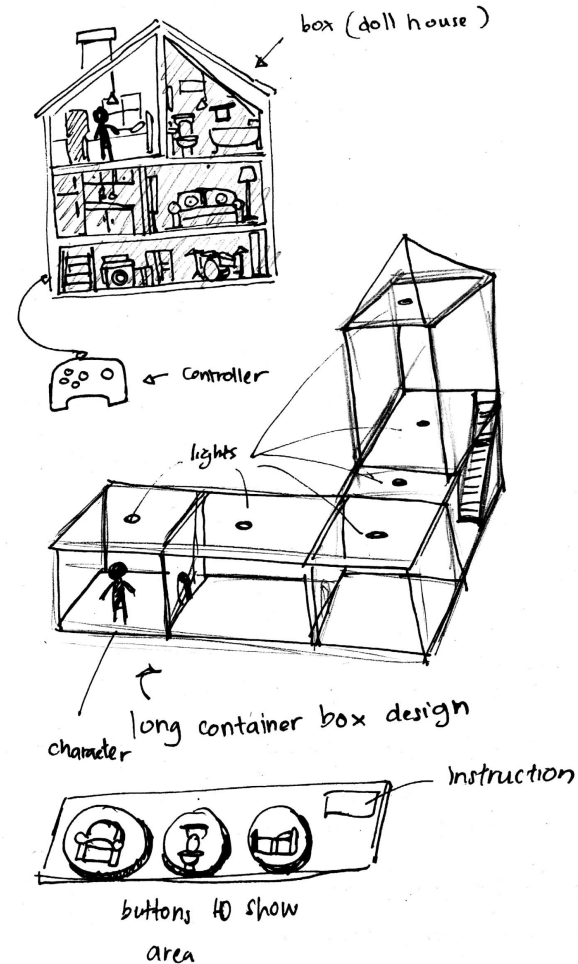 box (doll house)
controller
lights
long container box design
character
Instruction
buttons to show
area